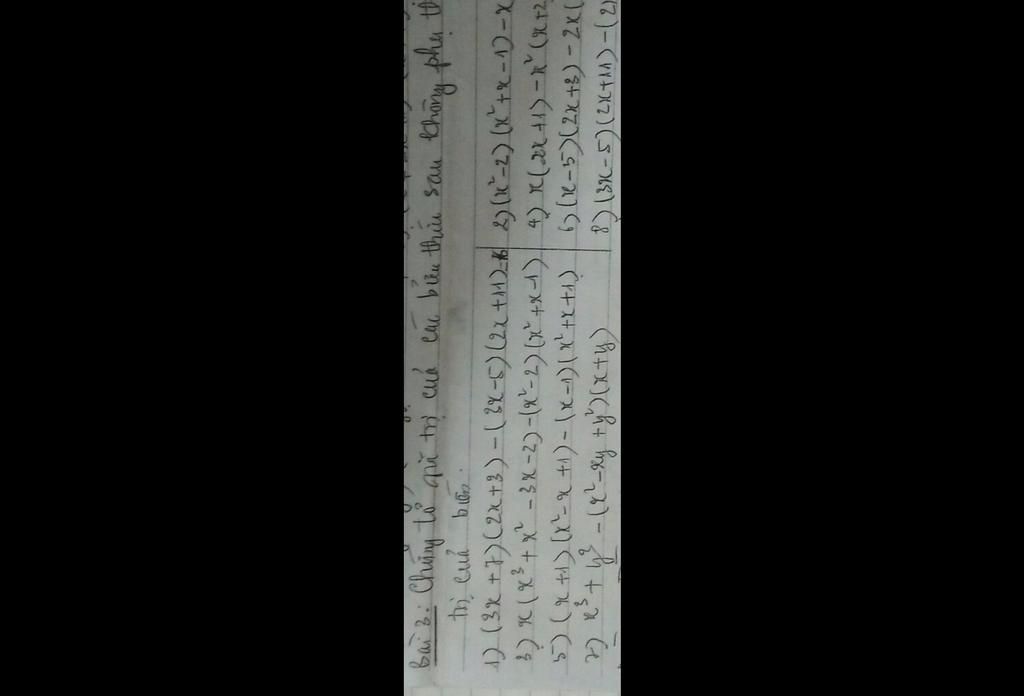 Bài 3: Chứng tỏ giá trị của các biểu thức sau không phụ th
trị của biến.
1) (3x+7)(2x+3)-(3x-5)(2x+11)
2) (x²-2)(x²+x-1)-x
3) x(x³+x²-3x-2)-(x²-2)(x²+x-1)
4) x(2x+1)-x²(x+2
5) (x+1)(x²-x+1)-(x-1)(x²+x+1)
6) (x-5)(2x+3)-2x(
7) x³+y³-(x²-xy+y²)(x+y)
8) (3x-5)(2x+11)-(2